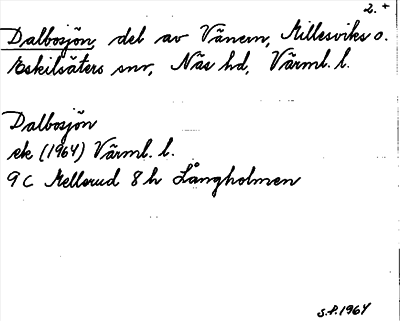 2. +
Dalbosjön, del av Vänern, Millesviks o.
Eskilsäters snr, Näs hd, Värml. l.
Dalbosjön
ek (1964) Värml. l.
9 C Mellerud 8 h Långholmen
S.F. 1964